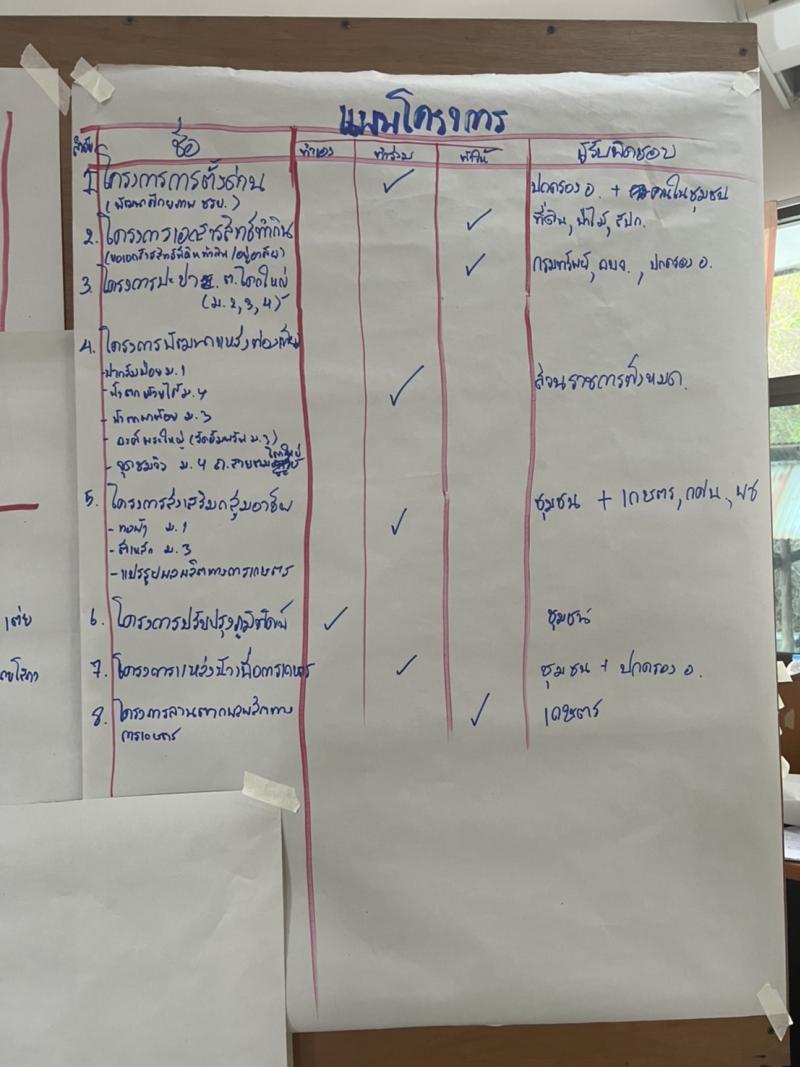 แผนโครงการ
ลำดับ ชื่อ ทำเอง ทำร่วม ทำให้ ผู้รับผิดชอบ
1. โครงการการตั้งด่าน ✓ ปกครอง อ. + คนในชุมชน
(พัฒนาศักยภาพ ชรบ.)
2. โครงการเอกสารสิทธิ์ทำกิน ✓ ที่ดิน, ป่าไม้, สปก.
(ขอเอกสารสิทธิ์ที่ดินทำกิน/อยู่อาศัย)
3. โครงการประปา ต. ใหญ่ ✓ กรมทรัพย์, อบจ., ปกครอง อ.
(ม. 2, 3, 4)
4. โครงการพัฒนาแหล่งท่องเที่ยว ✓ ส่วนราชการทั้งหมด
ม. 1
- น้ำตก ม. 4
- ม. 3
- องค์พระใหญ่ (วัด ม. 3)
- จุดชมวิว ม. 4 ถ.สาย
5. โครงการส่งเสริมกลุ่มอาชีพ ✓ ชุมชน + เกษตร, กศน., พช
- ทอผ้า ม. 1
- ม. 3
- แปรรูปผลผลิตทางการเกษตร
6. โครงการปรับปรุงภูมิทัศน์ ✓ ชุมชน
7. โครงการแหล่งน้ำเพื่อการเกษตร ✓ ชุมชน + ปกครอง อ.
8. โครงการลานตากผลผลิตทาง ✓ เกษตร
การเกษตร